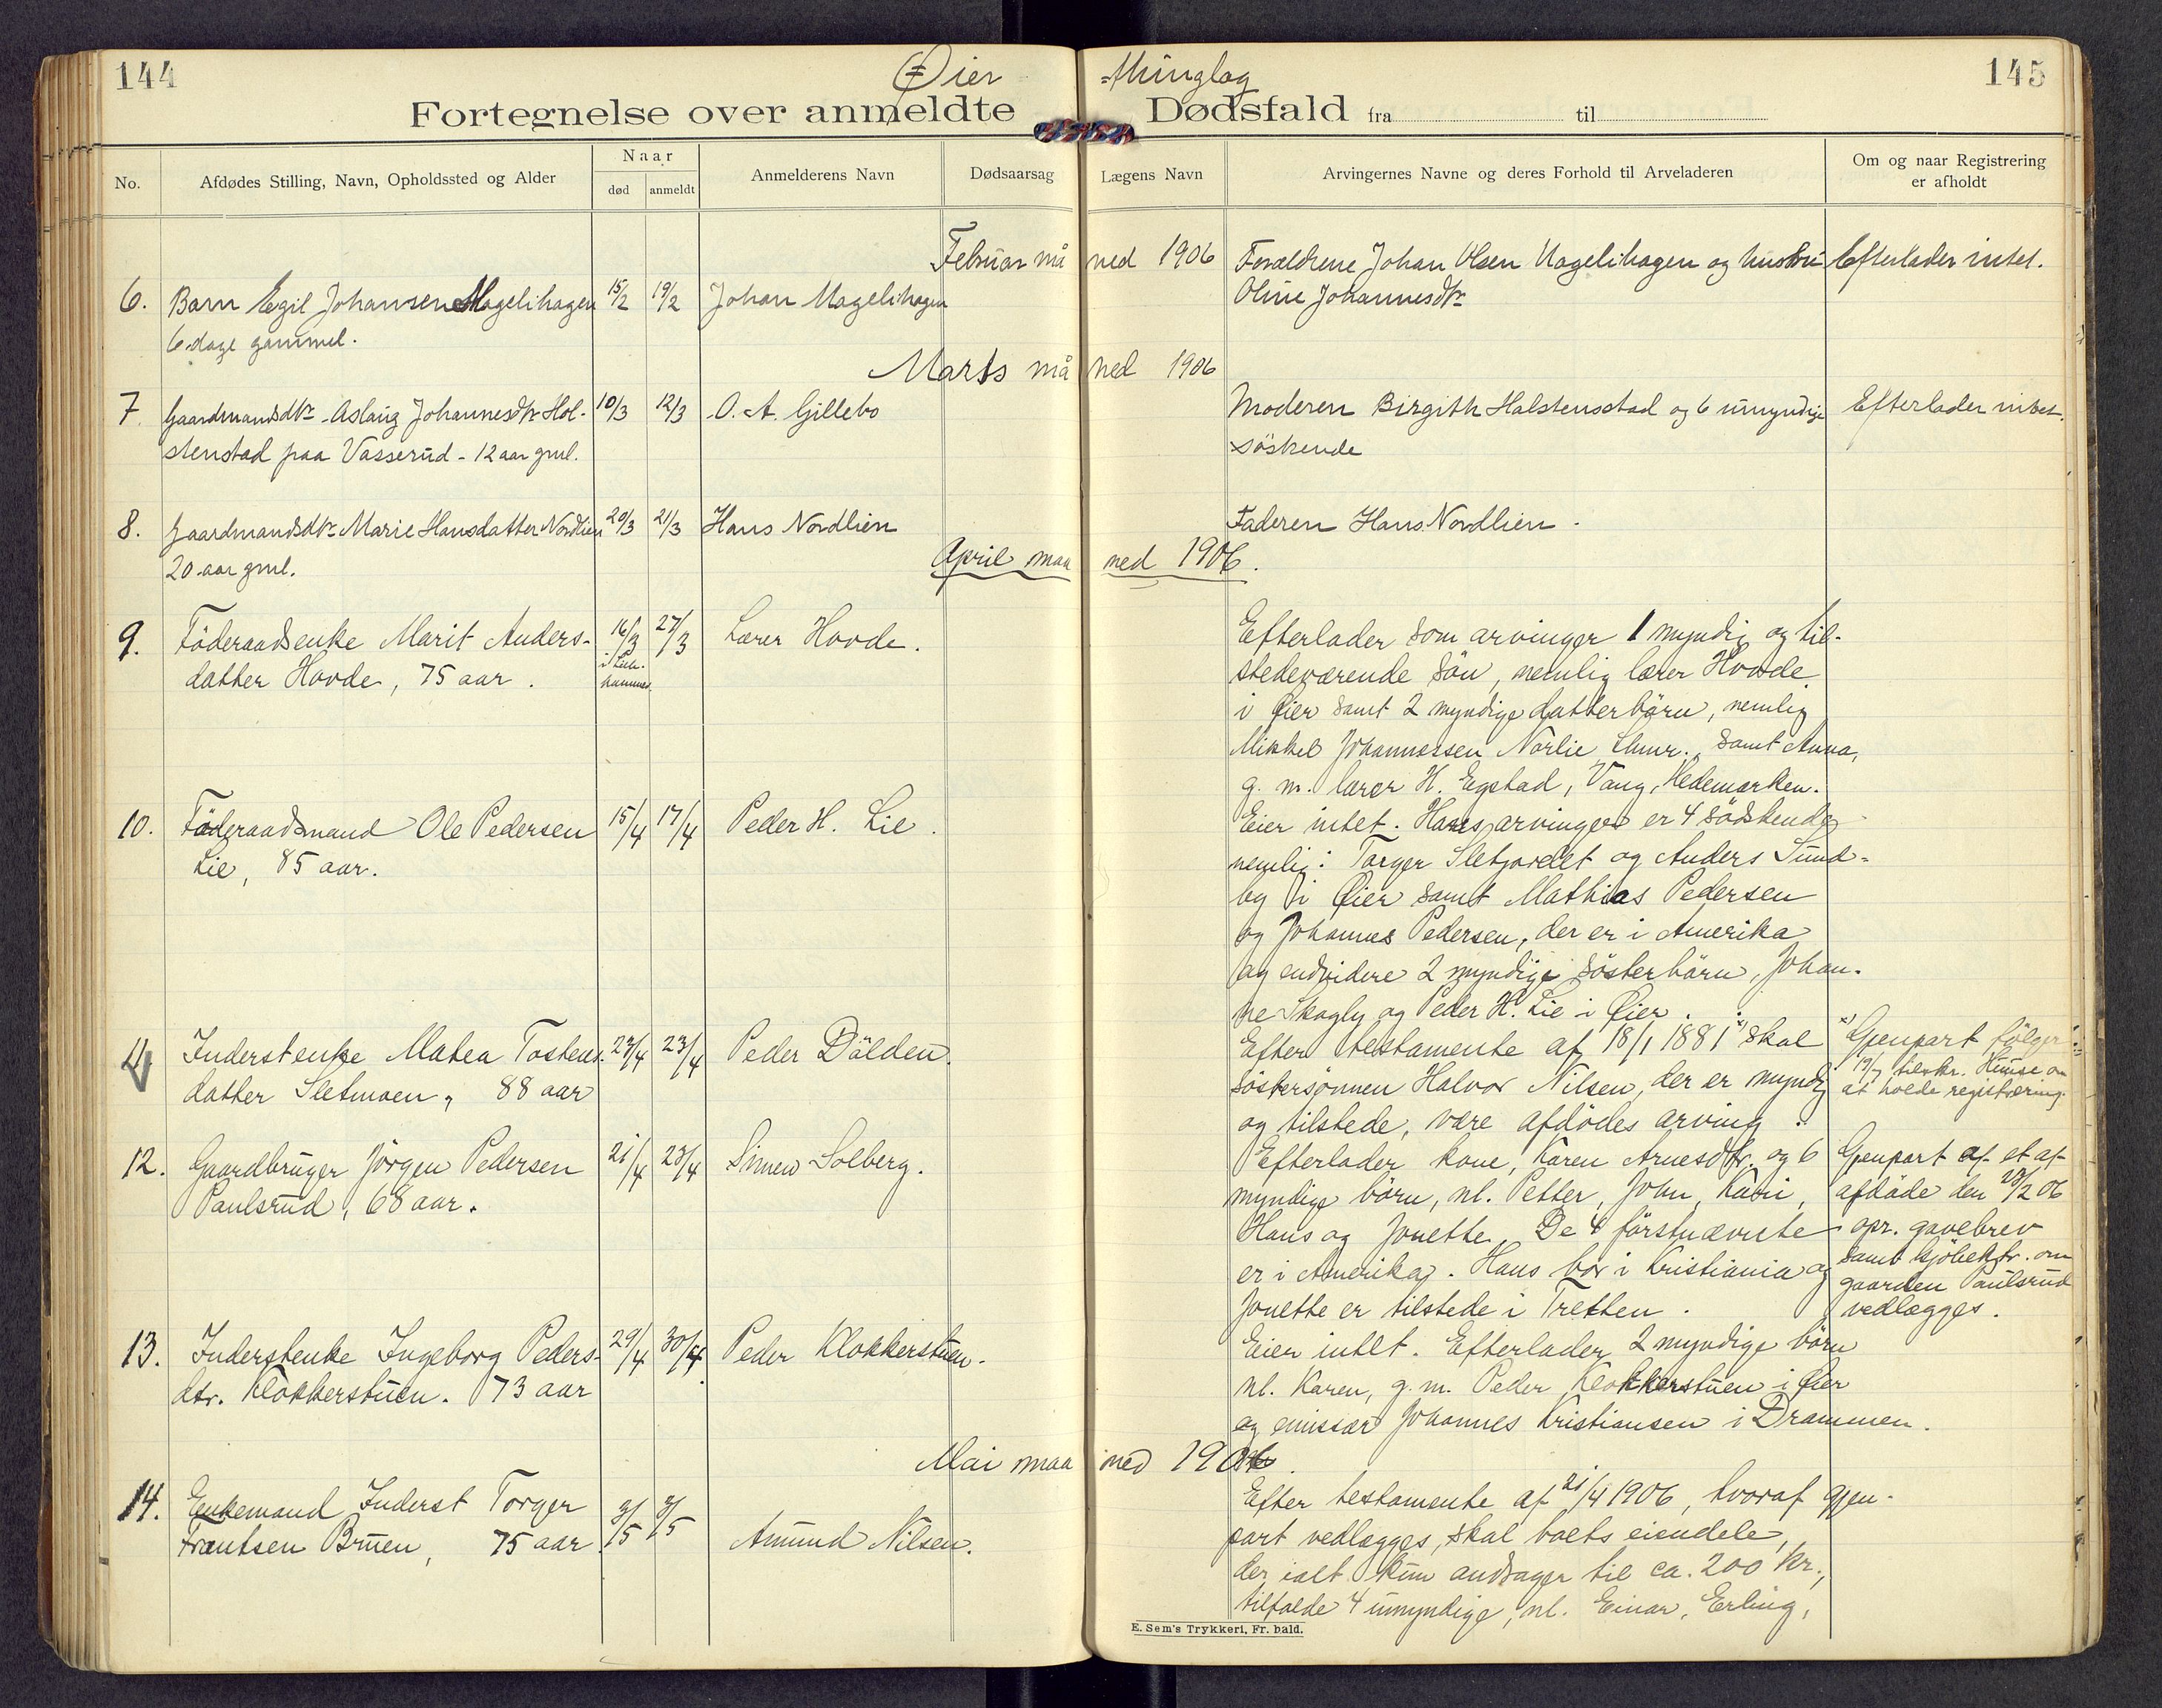 144
Øier
-thinglag
145
Fortegnelse over anmeldte Dødsfald fra til
No.
Afdødes Stilling, Navn, Opholdssted og Alder
Naar
død
anmeldt
Anmelderens Navn
Dødsaarsag
Lægens Navn
Arvingernes Navne og deres Forhold til Arveladeren
Om og naar Registrering
er afholdt
Februar måned 1906
6. Barn Egil Johansen Magelihagen 15/2 19/2 Johan Magelihagen
6 dage gammel.
Forældrene Johan Olsen Magelihagen og hustru
Oline Johannesdtr
Efterlader intet.
Marts måned 1906
7 Gaardmandsdtr. Aslaug Johannesdtr Hol- 10/3 12/3 O. A. Gillebo
stenstad paa Vasserud - 12 aar gml.
Moderen Birgith Halstensstad og 6 umyndige
söskende
Efterlader intet.
8. Gaardmandsdtr. Marie Hansdatter Nordlien 20/3 21/3 Hans Nordlien
20 aar gml.
Faderen Hans Nordlien.
April maaned 1906.
9. Föderaadsenke Marit Anders- 16/3 27/3 Lærer Hovde.
datter Hovde, 75 aar.
i Lille-
hammer
Efterlader som arvinger 1 myndig og til-
stedeværende sön, nemlig lærer Hovde
i Øier samt 2 myndige datterbörn, nemlig
Mikkel Johannessen Norlie Lhmr., samt Anna,
g. m. lærer H. Egstad, Vang, Hedemarken.
10. Föderaadsmand Ole Pedersen 15/4 17/4 Peder H. Lie.
Lie, 85 aar.
Eier intet. Hans arvinger er 4 södskende
nemlig: Torger Sletjordet og Anders Sund-
by i Øier samt Mathias Pedersen
og Johannes Pedersen, der er i Amerika
og endvidere 2 myndige sösterbörn, Johan-
ne Skogly og Peder H. Lie i Øier.
11 Inderstenke Matea Tostens- 23/4 23/4 Peder Dölden.
datter Sletmoen, 88 aar
Efter testamente af 18/1 1881 x) skal
söstersönnen Halvor Nilsen, der er myndig
og tilstede, være afdödes arving.
x) Gjenpart fölger
at holde registrering.
12. Gaardbruger Jörgen Pedersen 21/4 23/4 Simen Solberg.
Paulsrud, 68 aar.
Efterlader kone, Karen Arnesdtr. og 6
myndige börn, nl. Petter, John, Kari,
Hans og Jonette. De 4 förstnævnte
er i Amerika. Hans bor i Kristiania og
Jonette er tilstede i Tretten.
Gjenpart af et af
afdöde den 28/2 06
opr. gavebrev
samt kjöbektr. om
gaarden Paulsrud
vedlægges.
13. Inderstenke Ingeborg Peders- 29/4 30/4 Peder Klokkerstuen.
dtr. Klokkerstuen. 73 aar
Eier intet. Efterlader 2 myndige börn
nl. Karen, g. m. Peder Klokkerstuen i Øier
og emissær Johannes Kristiansen i Drammen.
Mai maaned 1906.
14. Enkemand Inderst Torger 3/5 3/5 Amund Nilsen.
Frantsen Bruen, 75 aar.
Efter testamente af 21/4 1906, hvoraf gjen-
part vedlægges, skal boets eiendele,
der ialt kun andrager til ca. 200 kr.,
tilfalde 4 umyndige, nl. Einar, Erling,
E. Sem's Trykkeri, Fr. hald.